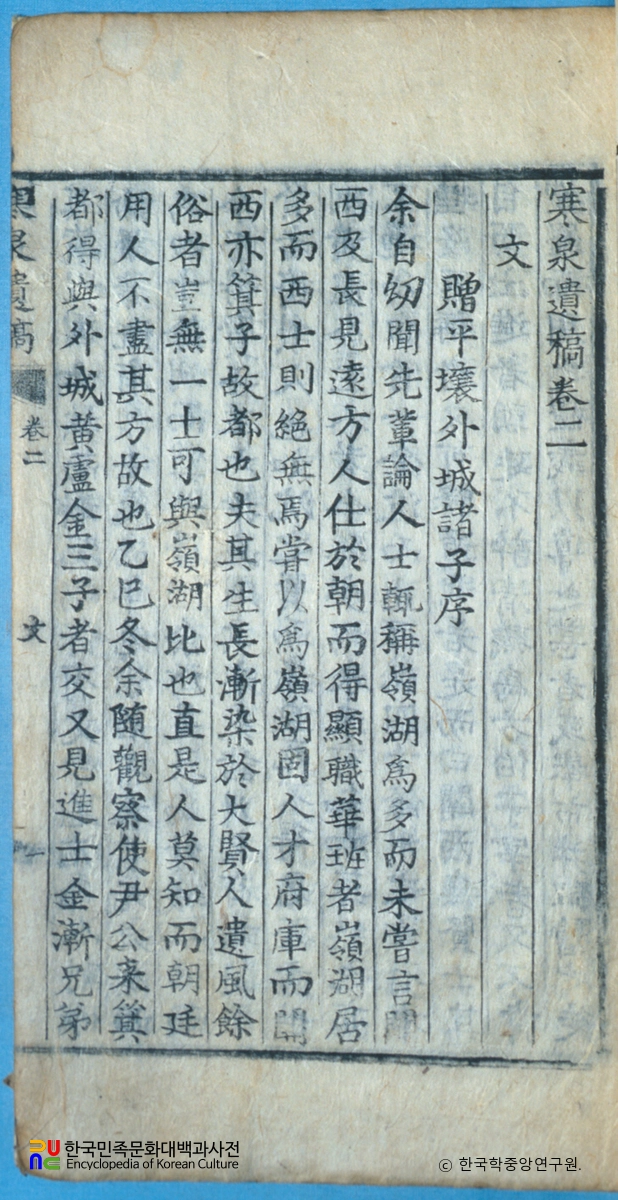 寒泉遺稿卷二
文
贈平壤外城諸子序
余自幼聞先輩論人士輒稱嶺湖爲多而未嘗言關
西及長見遠方人仕於朝而得顯職華班者嶺湖居
多而西士則絶無焉嘗以爲嶺湖固人才府庫而關
西亦箕子故都也夫其生長漸染於大賢人遺風餘
俗者豈無一士可與嶺湖比也直是人莫知而朝廷
用人不盡其方故也乙巳冬余随觀察使尹公来箕
都得與外城黄盧金三子者交又見進士金漸兄弟
寒泉遺稿
卷二
文
一
한국민족문화대백과사전
Encyclopedia of Korean Culture
ⓒ 한국학중앙연구원.